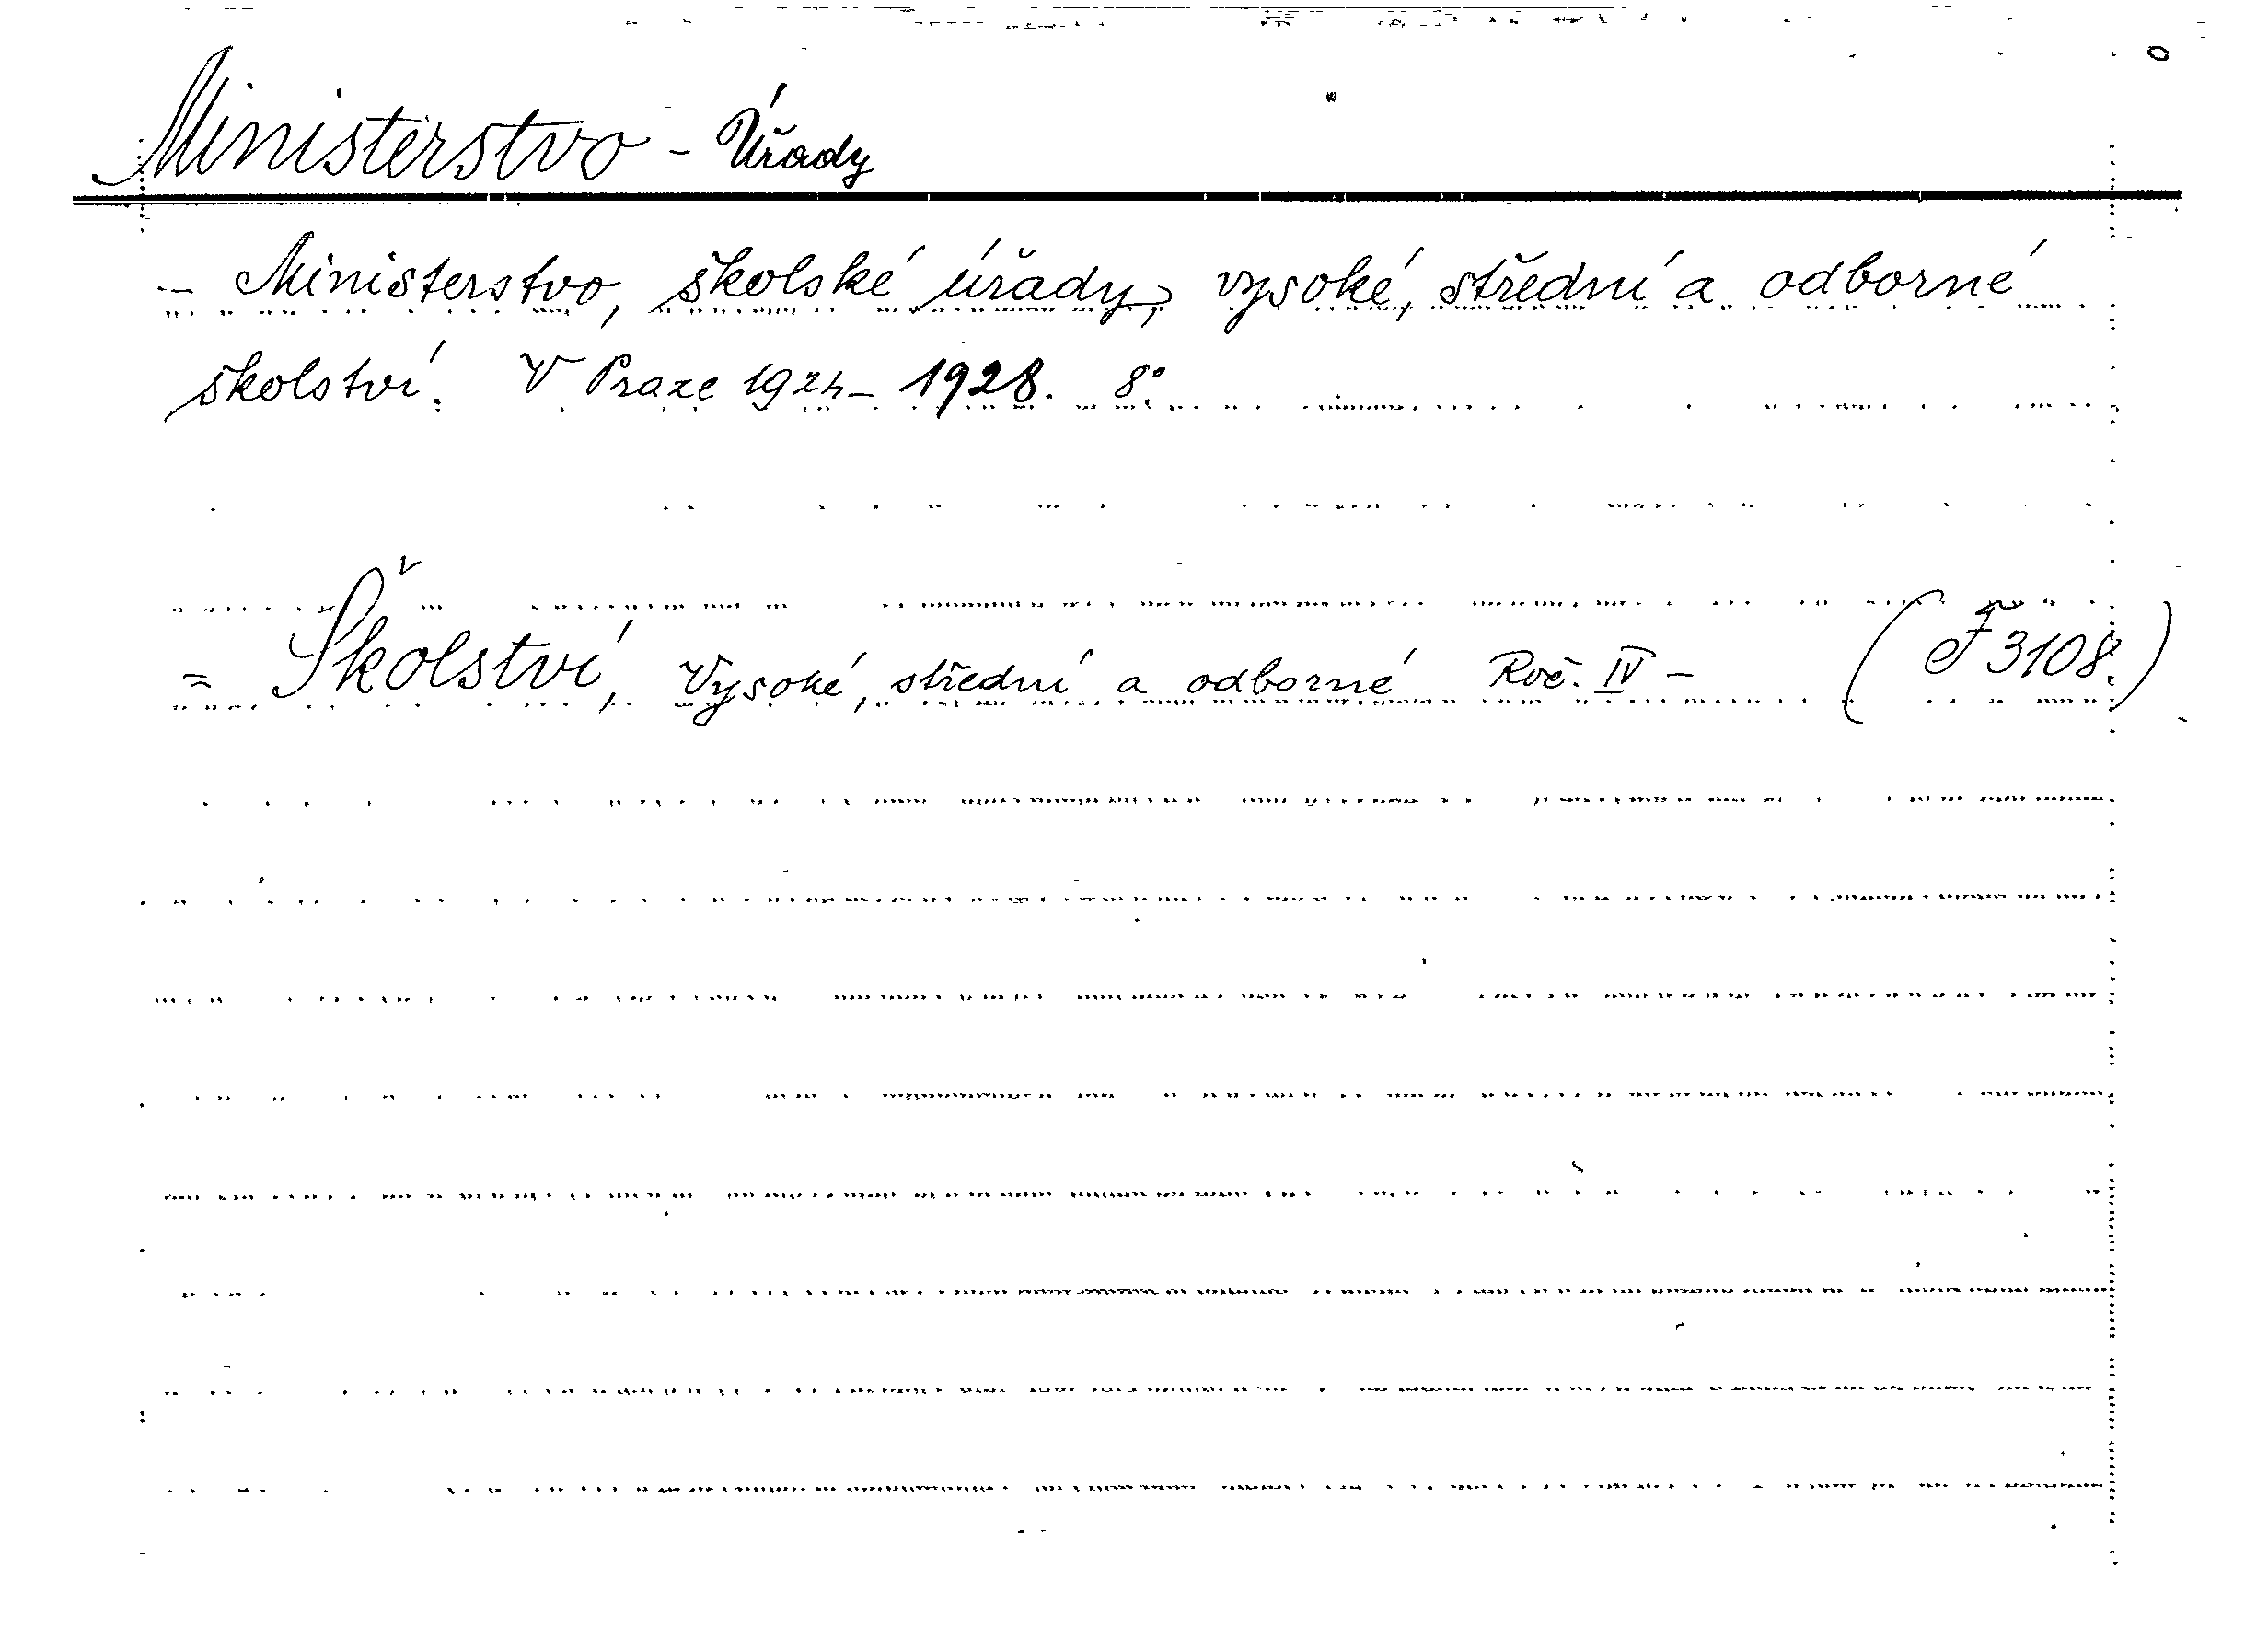 Ministerstvo - Úřady
- Ministerstvo, školské úřady, vysoké, střední a odborné
školství. V Praze 1924- 1928. 8°.
= Školství, Vysoké, střední a odborné Roč. IV - ( F 3108.)